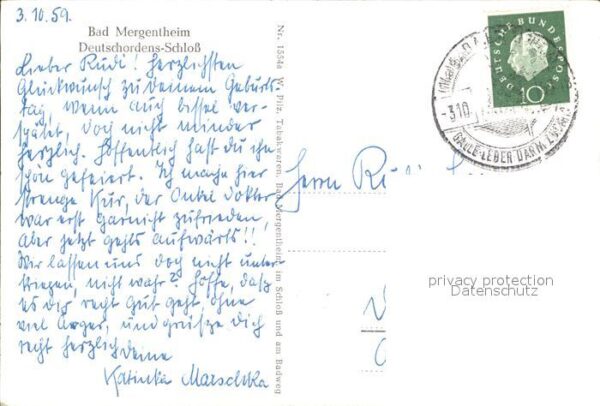 3.10.59.
Bad Mergentheim
Deutschordens-Schloß
Lieber Rudi! Herzlichsten
Glückwunsch zu Deinem Geburts-
tag, wenn auch bissel ver-
spätet, doch nicht minder
herzlich. Hoffentlich hast du ihn
schön gefeiert. Ich mache hier
strenge Kur, der Onkel Doktor
war erst garnicht zufrieden,
aber jetzt gehts aufwärts!!
Wir lassen uns doch nicht unter-
kriegen, nicht wahr? Hoffe, daß
es dir recht gut geht ohne
viel Ärger, und grüße Dich
recht herzlich Deine
Katinka Marschka
Nr. 1554a W. Pilz, Tabakwaren, Bad Mergentheim, im Schloß und am Badweg
Herrn Ru
DEUTSCHE BUNDESPOST
10
-3.10
GALLE-LEBER DARM
privacy protection
Datenschutz